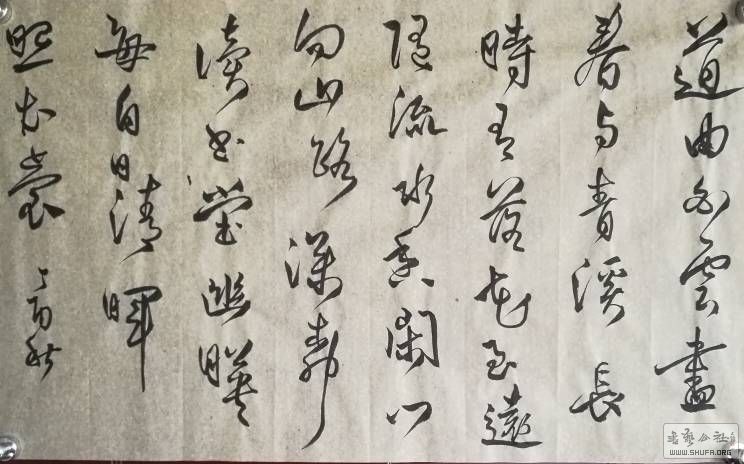 道曲白雲盡
春与青溪長
時有落花至遠
随流水香閑門
向山路深柳
讀書堂幽映
每白日清暉
照衣裳 丁酉秋
書藝公社
WWW.SHUFA.ORG